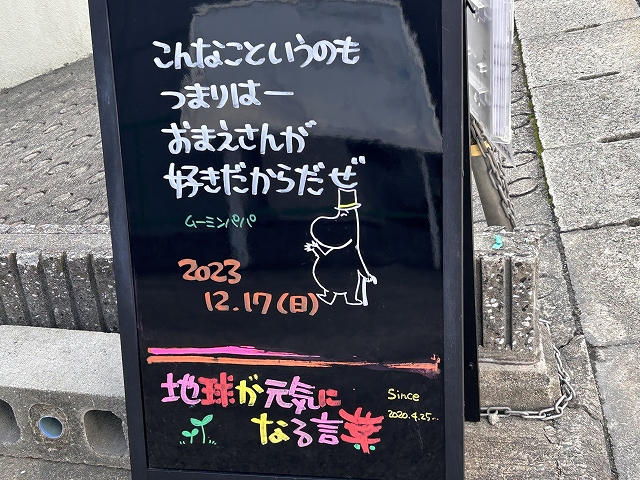 こんなこというのも
つまりはー
おまえさんが
好きだからだぜ
ムーミンパパ
2023
12.17(日)
地球が元気に
なる言葉
Since
2020.4.25〜